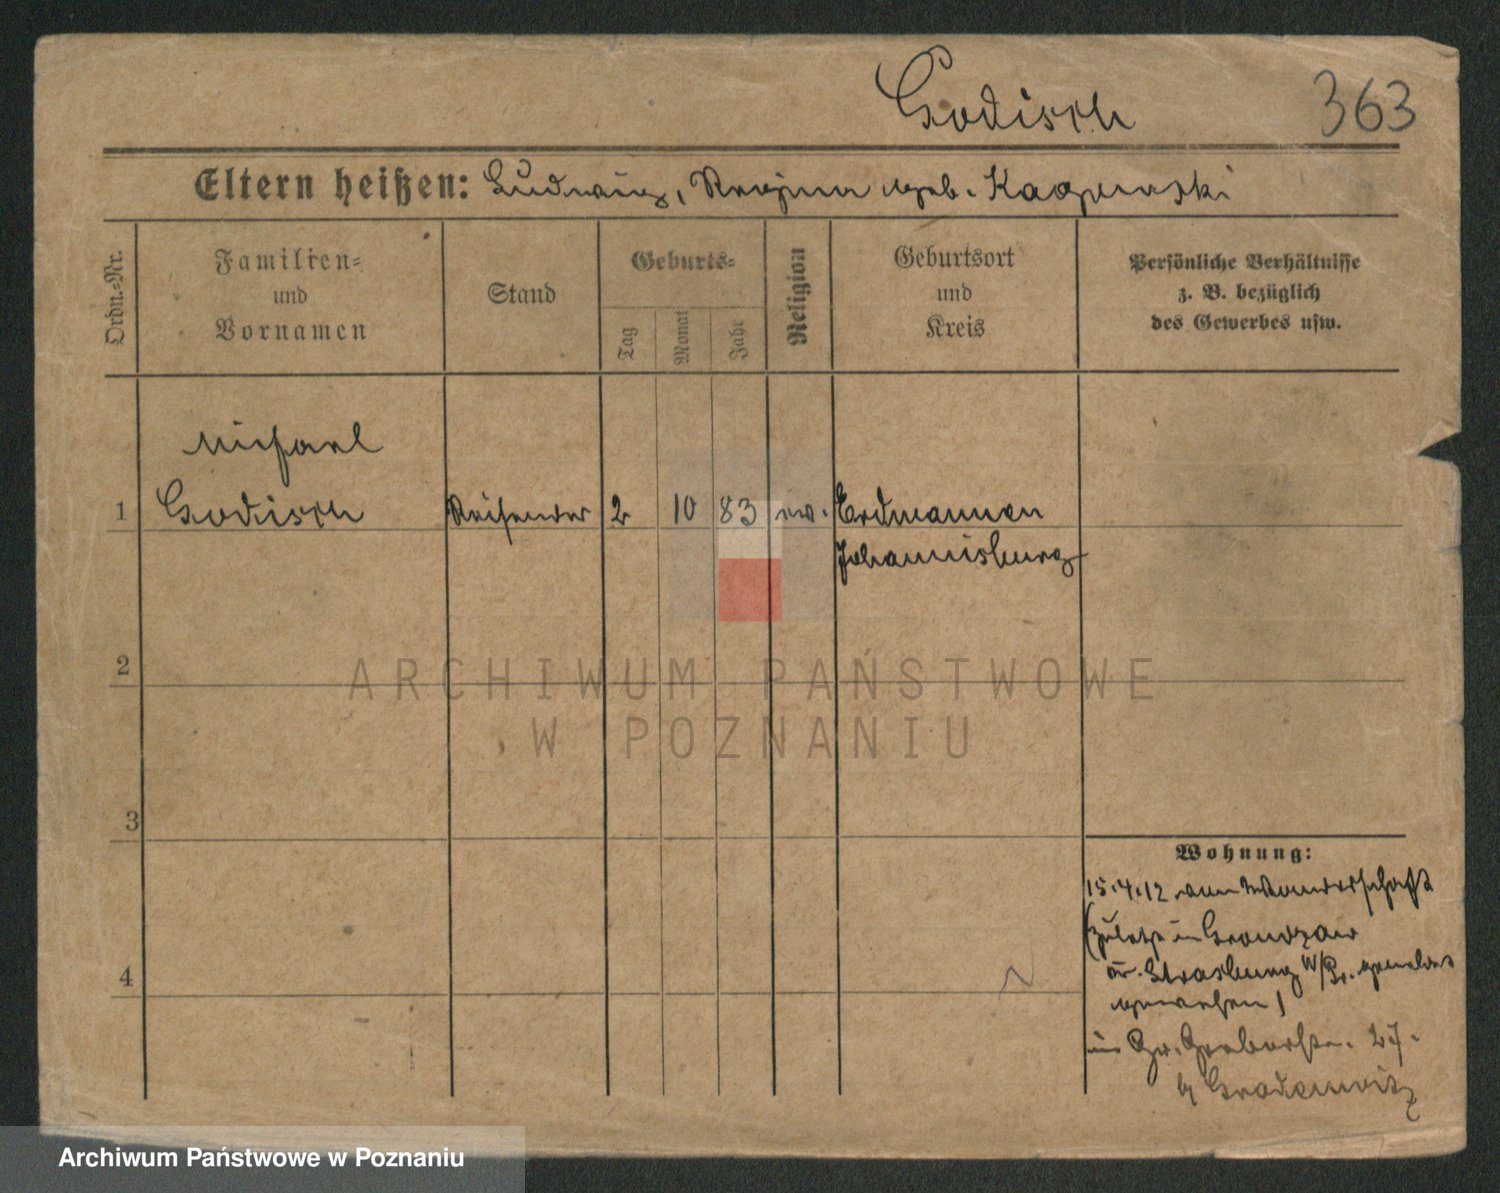 Godisch 363
Eltern heißen: Ludwig, Regina geb.
Ordn.-Nr.
Familien-
und
Vornamen
Stand
Geburts-
Tag
Monat
Jahr
Religion
Geburtsort
und
Kreis
Persönliche Verhältnisse
z. B. bezüglich
des Gewerbes usw.
Michael
1 Godisch Reisender 2 10 83 ev. Erdmannen
Johannisburg
2
3
4
Wohnung:
15.4.12 von Wanderschaft
(zuletzt in
Kr. Strasburg W/Pr. gemeldet
gewesen)
Gr. Gerberstr. 27.
b/
ARCHIWUM PAŃSTWOWE
W POZNANIU
Archiwum Państwowe w Poznaniu